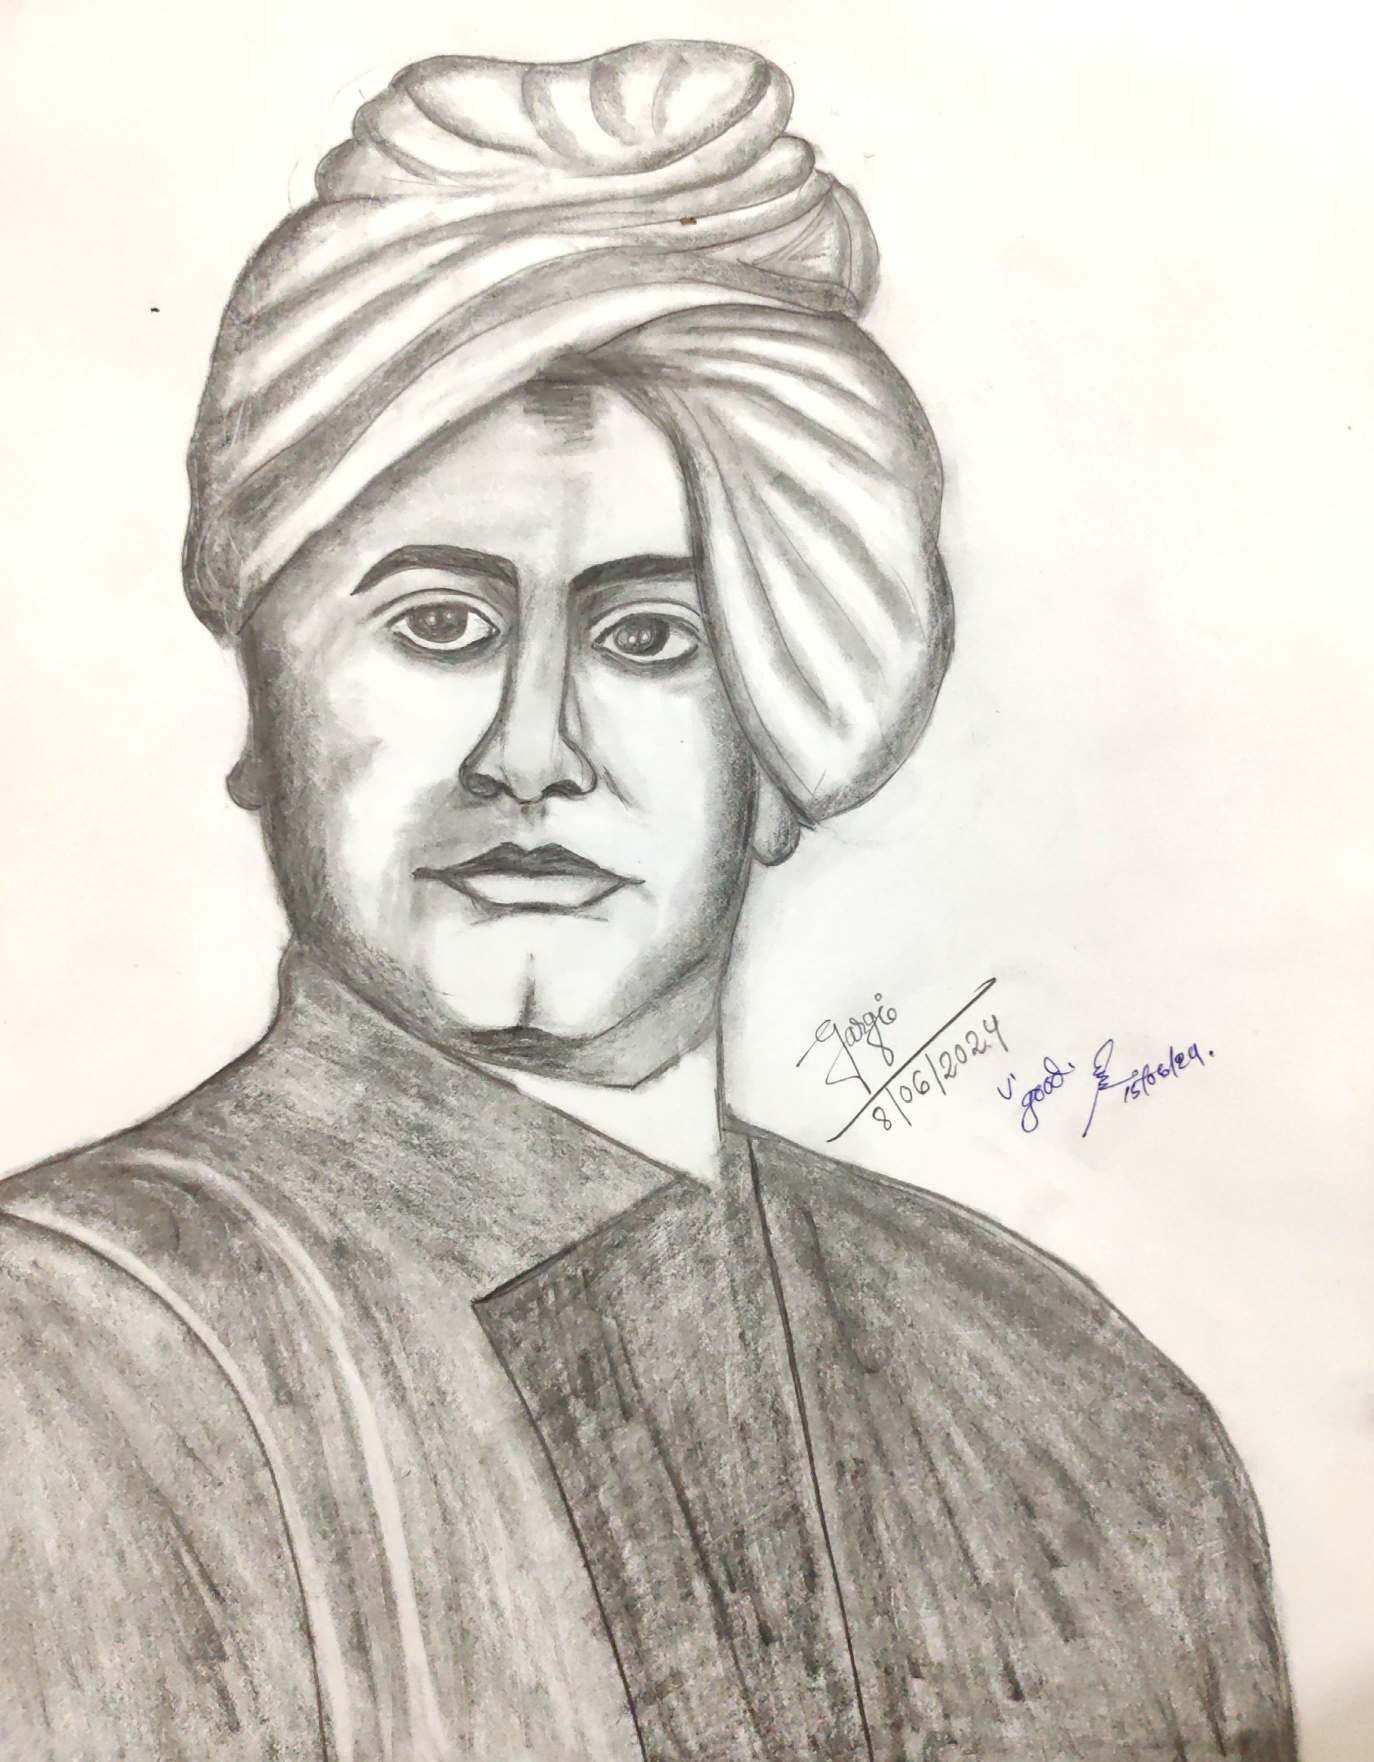 Gargi
8/06/2024
V' good.
15/06/24.